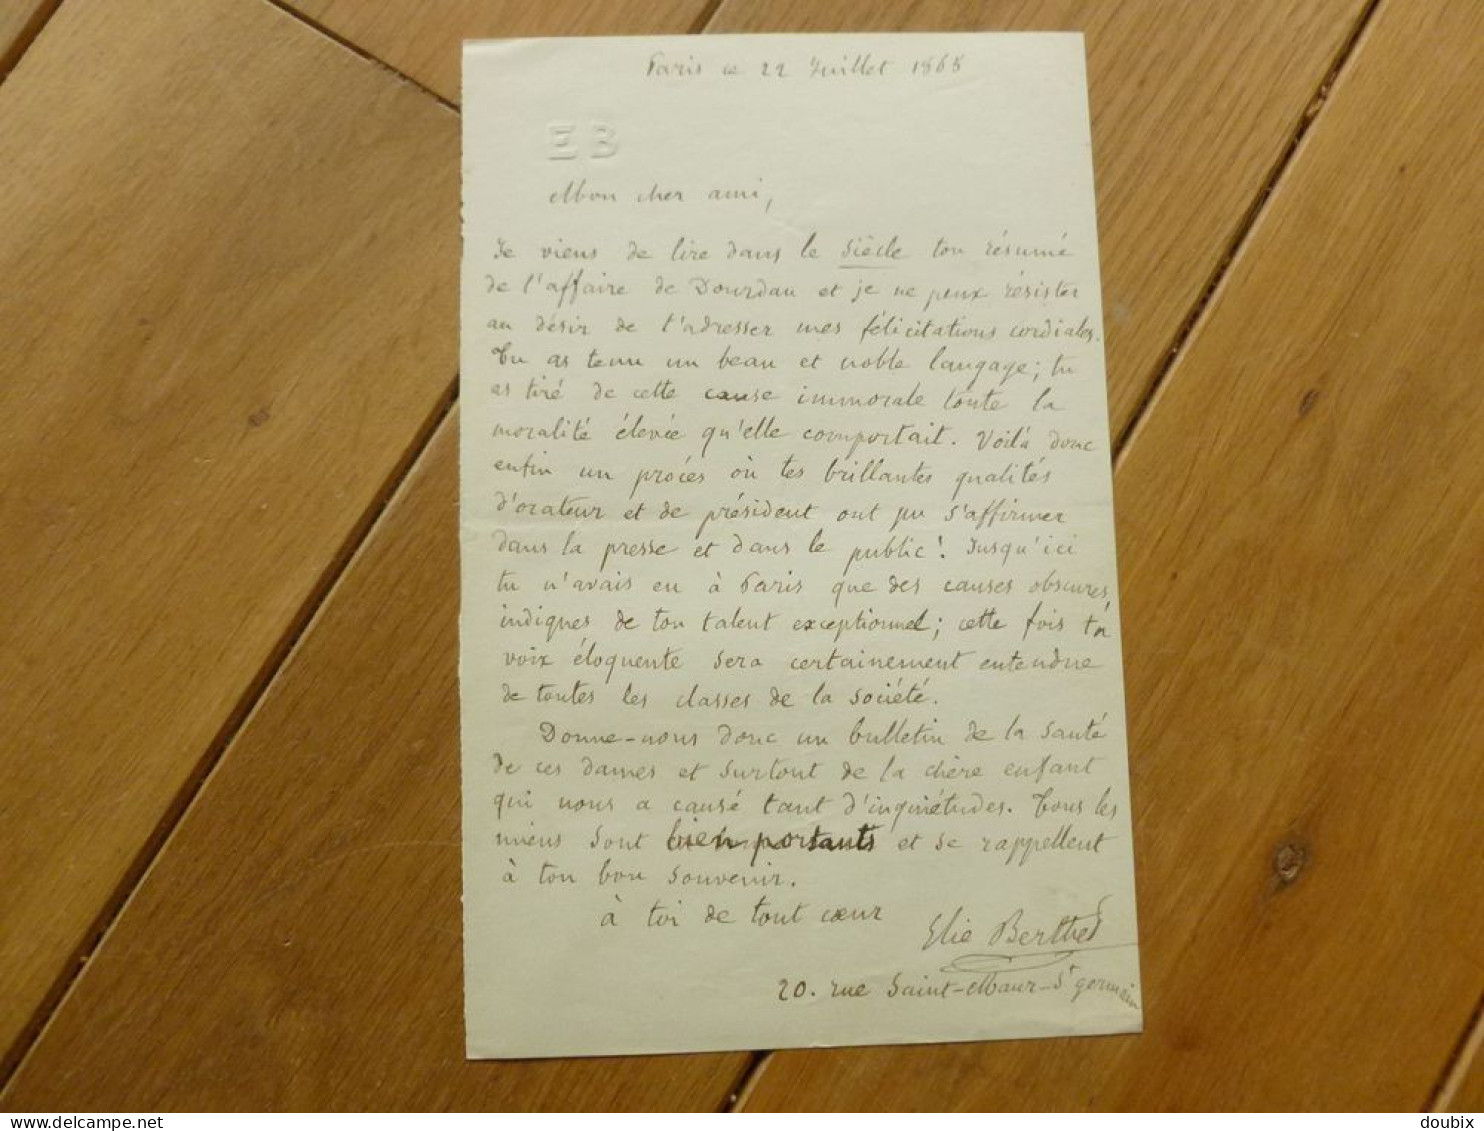 Paris ce 22 Juillet 1868
EB
Mon cher ami,
Je viens de lire dans le Siècle ton résumé
de l'affaire de Dourdan et je ne peux résister
au désir de t'adresser mes félicitations cordiales.
Tu as tenu un beau et noble langage; tu
as tiré de cette cause immorale toute la
moralité élevée qu'elle comportait. Voilà donc
enfin un procès où tes brillantes qualités
d'orateur et de président ont pu s'affirmer
dans la presse et dans le public! Jusqu'ici
tu n'avais eu à Paris que des causes obscures
indiques de ton talent exceptionnel; cette fois ta
voix éloquente sera certainement entendue
de toutes les classes de la société.
Donne-nous donc un bulletin de la santé
de ces dames et surtout de la chère enfant
qui nous a causé tant d'inquiétudes. Tous les
miens sont bien portants et se rappellent
à ton bon souvenir.
à toi de tout cœur
Elie Berthet
20. rue Saint-Maur-St germain
doubix